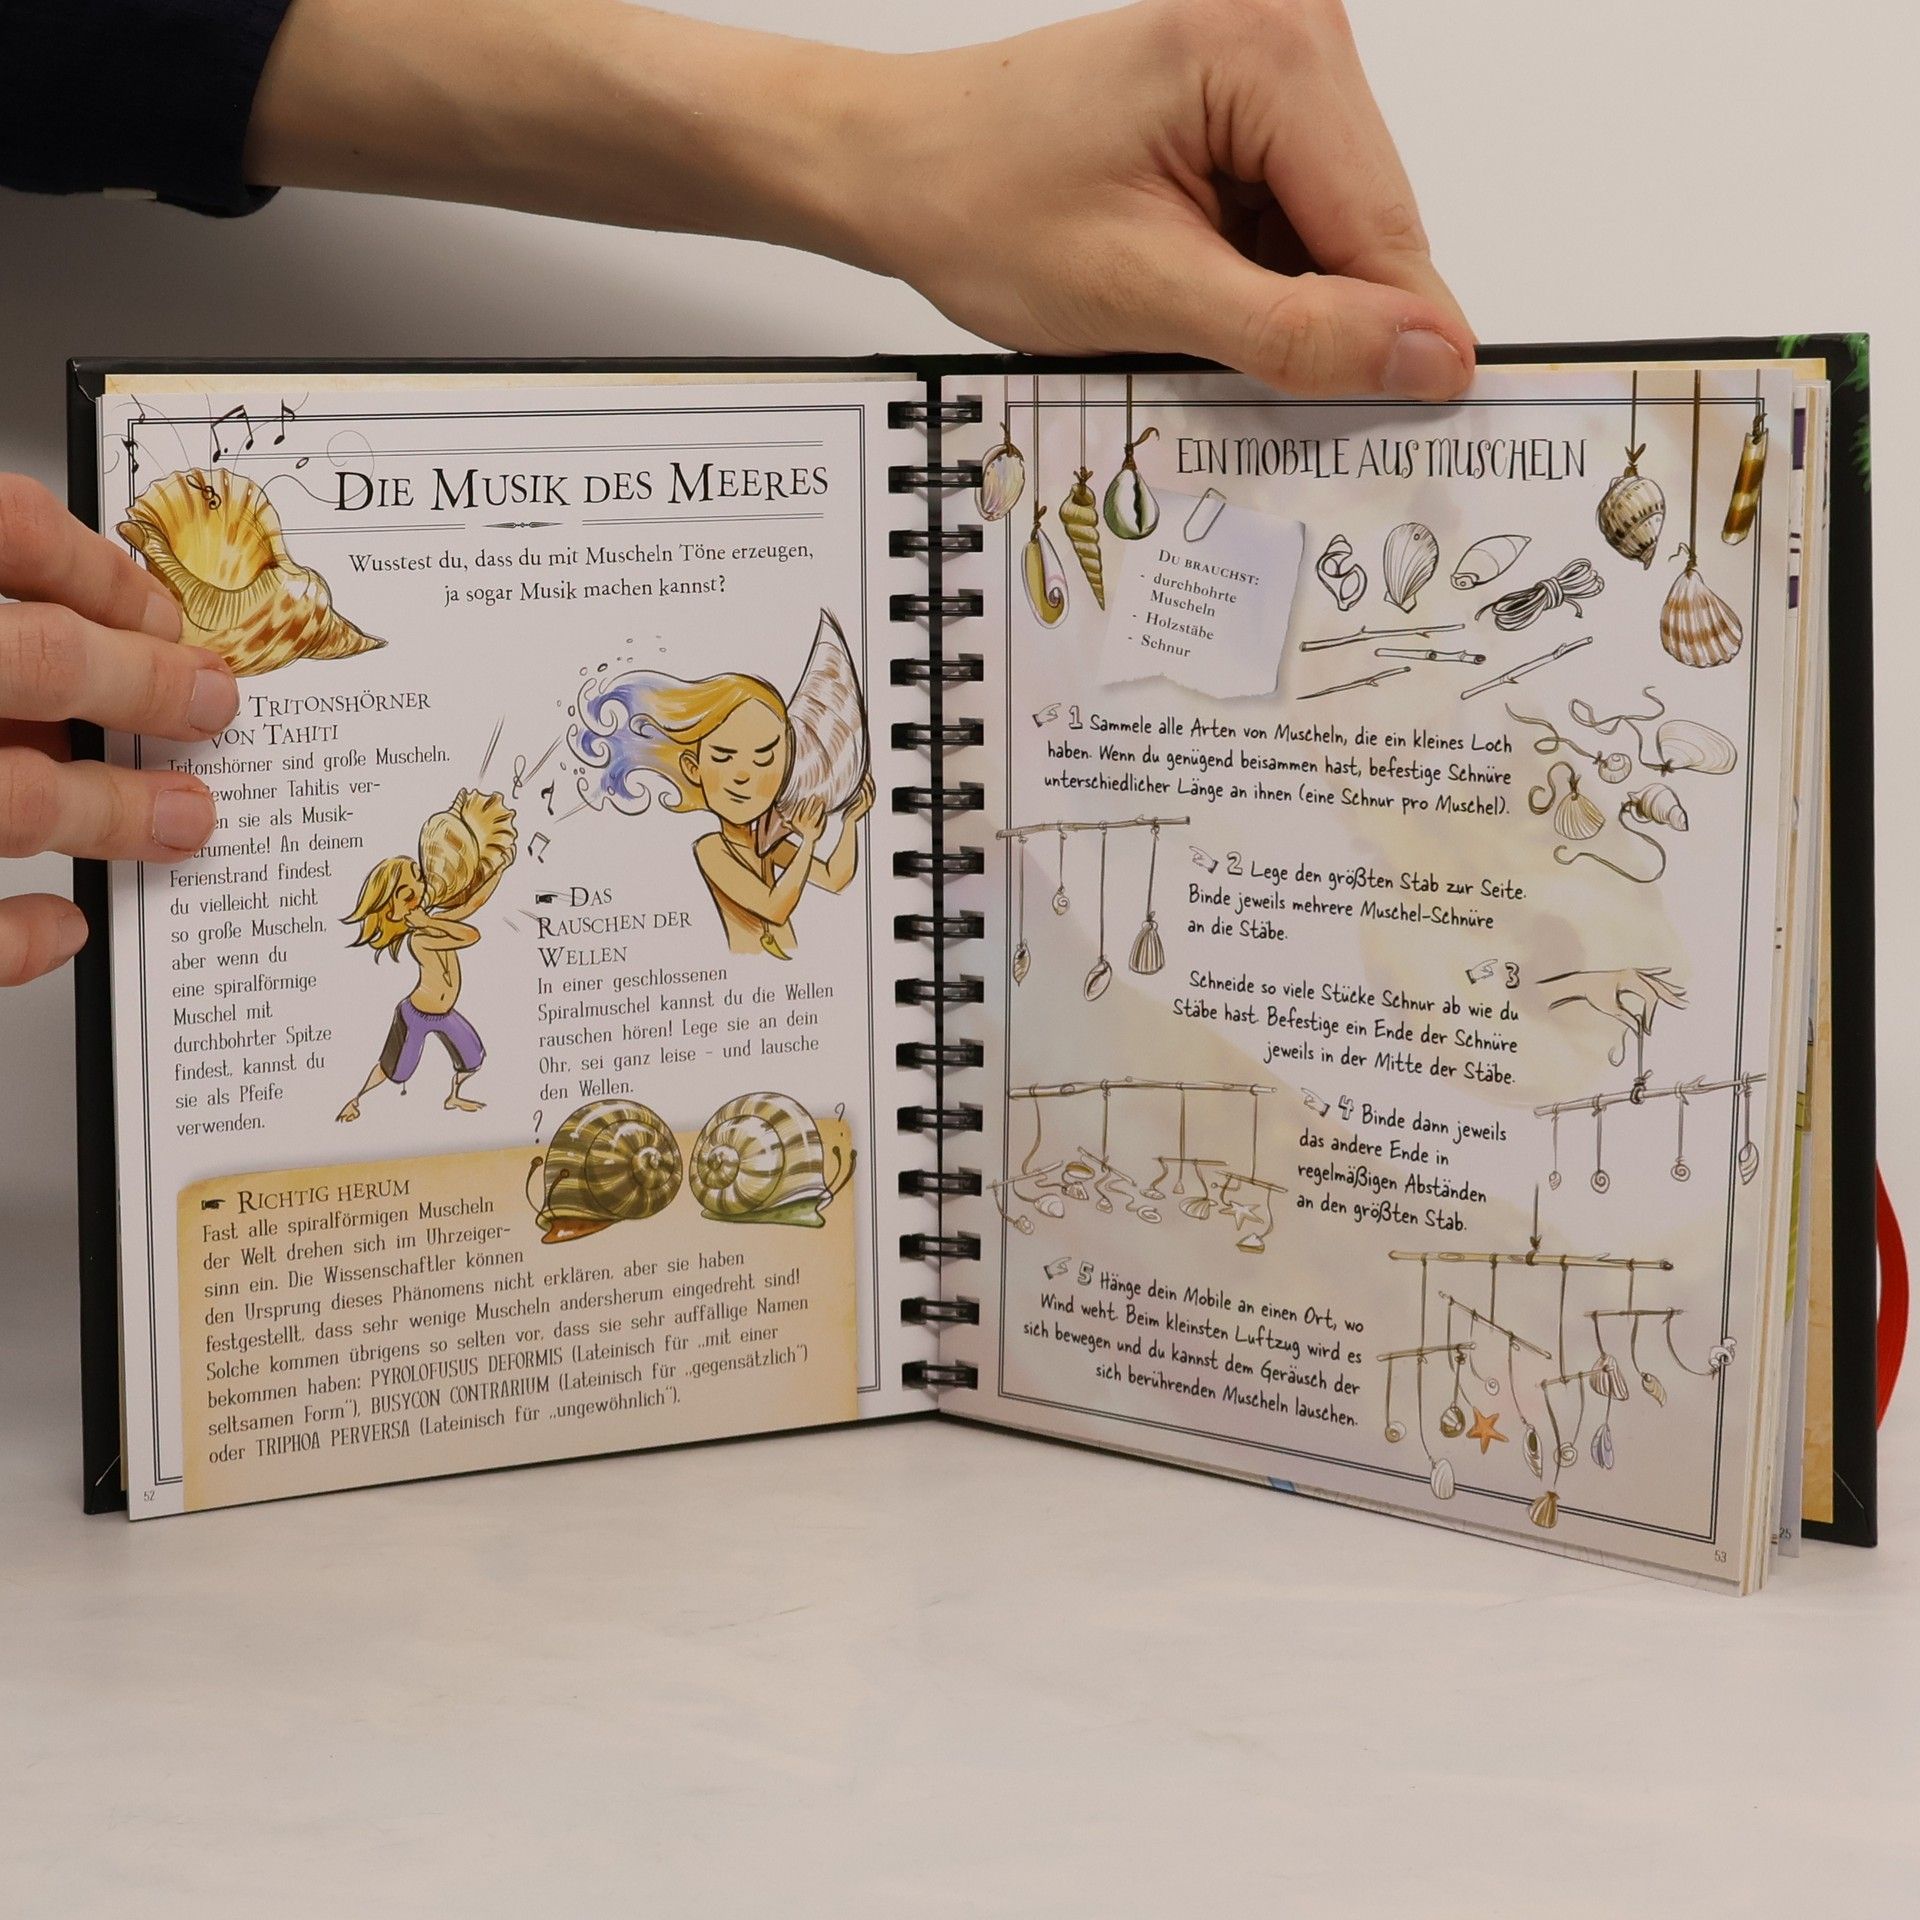 DIE MUSIK DES MEERES
Wusstest du, dass du mit Muscheln Töne erzeugen,
ja sogar Musik machen kannst?
TRITONSHÖRNER
VON TAHITI
Tritonshörner sind große Muscheln.
ewohner Tahitis ver-
en sie als Musik-
rumente! An deinem
Ferienstrand findest
du vielleicht nicht
so große Muscheln,
aber wenn du
eine spiralförmige
Muschel mit
durchbohrter Spitze
findest, kannst du
sie als Pfeife
verwenden.
DAS
RAUSCHEN DER
WELLEN
In einer geschlossenen
Spiralmuschel kannst du die Wellen
rauschen hören! Lege sie an dein
Ohr, sei ganz leise – und lausche
den Wellen.
? ?
RICHTIG HERUM
Fast alle spiralförmigen Muscheln
der Welt drehen sich im Uhrzeiger-
sinn ein. Die Wissenschaftler können
den Ursprung dieses Phänomens nicht erklären, aber sie haben
festgestellt, dass sehr wenige Muscheln andersherum eingedreht sind!
Solche kommen übrigens so selten vor, dass sie sehr auffällige Namen
bekommen haben: PYROLOFUSUS DEFORMIS (Lateinisch für „mit einer
seltsamen Form“), BUSYCON CONTRARIUM (Lateinisch für „gegensätzlich“)
oder TRIPHOA PERVERSA (Lateinisch für „ungewöhnlich“).
52
EIN MOBILE AUS MUSCHELN
DU BRAUCHST:
- durchbohrte
Muscheln
- Holzstäbe
- Schnur
1 Sammele alle Arten von Muscheln, die ein kleines Loch
haben. Wenn du genügend beisammen hast, befestige Schnüre
unterschiedlicher Länge an ihnen (eine Schnur pro Muschel).
2 Lege den größten Stab zur Seite.
Binde jeweils mehrere Muschel-Schnüre
an die Stäbe.
3
Schneide so viele Stücke Schnur ab wie du
Stäbe hast. Befestige ein Ende der Schnüre
jeweils in der Mitte der Stäbe.
4 Binde dann jeweils
das andere Ende in
regelmäßigen Abständen
an den größten Stab.
5 Hänge dein Mobile an einen Ort, wo
Wind weht. Beim kleinsten Luftzug wird es
sich bewegen und du kannst dem Geräusch der
sich berührenden Muscheln lauschen.
53
25